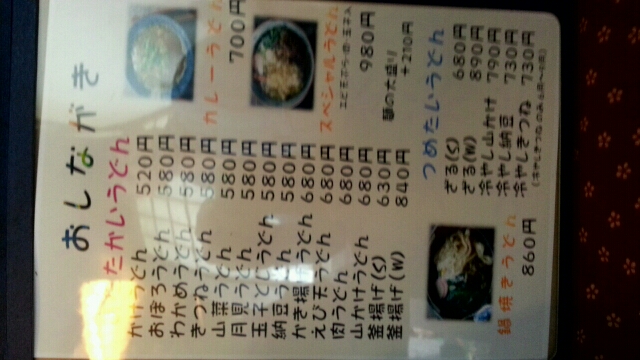 おしながき
たかいうどん
かけうどん 520円
おぼろうどん 580円
わかめうどん 580円
きつねうどん 580円
山菜うどん 580円
月見うどん 580円
玉子とじうどん 580円
納豆うどん 580円
かき揚げうどん 680円
えび天うどん 680円
肉うどん 680円
山かけうどん 680円
釜揚げ(S) 630円
釜揚げ(W) 840円
カレーうどん
700円
スペシャルうどん
980円
麺の大盛り
+210円
つめたいうどん
ざる(S) 680円
ざる(W) 890円
冷やし山かけ 790円
冷やし納豆 730円
冷やしきつね 730円
鍋焼きうどん
860円